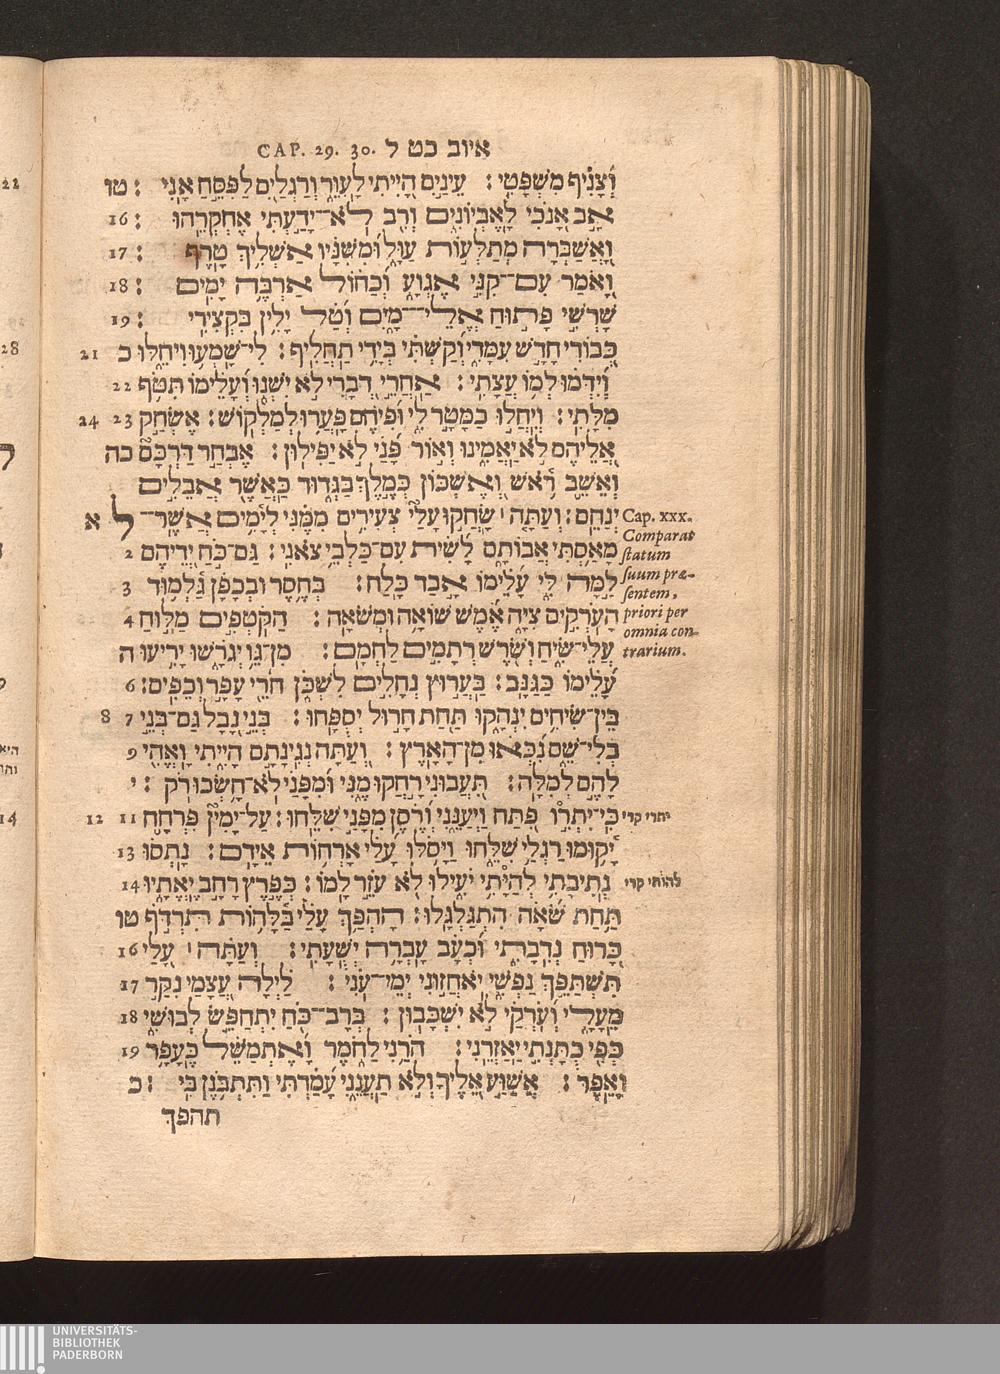 CAP. 29. 30. איוב כט ל
וְצָנִיף מִשְׁפָּטִי׃ עֵינַיִם הָיִיתִי לַעִוֵּר וְרַגְלַיִם לַפִּסֵּחַ אָנִי׃ טו
אָב אָנֹכִי לָאֶבְיוֹנִים וְרִב לֹא־יָדַעְתִּי אֶחְקְרֵהוּ׃ 16
וָאֲשַׁבְּרָה מְתַלְּעוֹת עַוָּל וּמִשִּׁנָּיו אַשְׁלִיךְ טָרֶף׃ 17
וָאֹמַר עִם־קִנִּי אֶגְוָע וְכַחוֹל אַרְבֶּה יָמִים׃ 18
שָׁרְשִׁי פָתוּחַ אֱלֵי־מָיִם וְטַל יָלִין בִּקְצִירִי׃ 19
כְּבוֹדִי חָדָשׁ עִמָּדִי וְקַשְׁתִּי בְּיָדִי תַחֲלִיף׃ לִי־שָׁמְעוּ וְיִחֵלּוּ כ 21
וְיִדְּמוּ לְמוֹ עֲצָתִי׃ אַחֲרֵי דְבָרִי לֹא יִשְׁנוּ וְעָלֵימוֹ תִּטֹּף 22
מִלָּתִי׃ וְיִחֲלוּ כַמָּטָר לִי וּפִיהֶם פָּעֲרוּ לְמַלְקוֹשׁ׃ אֶשְׂחַק 23 24
אֲלֵיהֶם לֹא יַאֲמִינוּ וְאוֹר פָּנַי לֹא יַפִּילוּן׃ אֶבְחַר דַּרְכָּם כה
וְאֵשֵׁב רֹאשׁ וְאֶשְׁכּוֹן כְּמֶלֶךְ בַּגְּדוּד כַּאֲשֶׁר אֲבֵלִים
יְנַחֵם׃ וְעַתָּה שָׂחֲקוּ עָלַי צְעִירִים מִמֶּנִּי לְיָמִים אֲשֶׁר־ ל א
Cap. xxx.
מָאַסְתִּי אֲבוֹתָם לָשִׁית עִם־כַּלְבֵי צֹאנִי׃ גַּם־כֹּחַ יְדֵיהֶם 2
Comparat
statum
לָמָּה לִּי עָלֵימוֹ אָבַד כָּלַח׃ בְּחֶסֶר וּבְכָפָן גַּלְמוּד 3
suum præ-
sentem,
הָעֹרְקִים צִיָּה אֶמֶשׁ שׁוֹאָה וּמְשֹׁאָה׃ הַקֹּטְפִים מַלּוּחַ 4
priori per
omnia con-
עֲלֵי־שִׂיחַ וְשֹׁרֶשׁ רְתָמִים לַחְמָם׃ מִן־גֵּו יְגֹרָשׁוּ יָרִיעוּ ה
trarium.
עָלֵימוֹ כַּגַּנָּב׃ בַּעֲרוּץ נְחָלִים לִשְׁכֹּן חֹרֵי עָפָר וְכֵפִים׃ 6
בֵּין־שִׂיחִים יִנְהָקוּ תַּחַת חָרוּל יְסֻפָּחוּ׃ בְּנֵי נָבָל גַּם־בְּנֵי 7 8
בְלִי־שֵׁם נִכְּאוּ מִן־הָאָרֶץ׃ וְעַתָּה נְגִינָתָם הָיִיתִי וָאֱהִי 9
לָהֶם לְמִלָּה׃ תִּעֲבוּנִי רָחֲקוּ מֶנִּי וּמִפָּנַי לֹא־חָשְׂכוּ רֹק׃ י
כִּי־יִתְרוֹ פִתַּח וַיְעַנֵּנִי וְרֶסֶן מִפָּנַי שִׁלֵּחוּ׃ עַל־יָמִין פִּרְחַח 11 12
יתרי קרי
יָקוּמוּ רַגְלַי שִׁלֵּחוּ וַיָּסֹלּוּ עָלַי אָרְחוֹת אֵידָם׃ נָתְסוּ 13
נְתִיבָתִי לְהַיָּתִי יֹעִילוּ לֹא עֹזֵר לָמוֹ׃ כְּפֶרֶץ רָחָב יֶאֱתָיוּ 14
להותי קרי
תַּחַת שֹׁאָה הִתְגַּלְגָּלוּ׃ הָהְפַּךְ עָלַי בַּלָּהוֹת תִּרְדֹּף טו
כָּרוּחַ נְדִבָתִי וּכְעָב עָבְרָה יְשֻׁעָתִי׃ וְעַתָּה עָלַי 16
תִּשְׁתַּפֵּךְ נַפְשִׁי יֹאחֲזוּנִי יְמֵי־עֹנִי׃ לַיְלָה עֲצָמַי נִקַּר 17
מֵעָלָי וְעֹרְקַי לֹא יִשְׁכָּבוּן׃ בְּרָב־כֹּחַ יִתְחַפֵּשׂ לְבוּשִׁי 18
כְּפִי כֻתָּנְתִּי יַאַזְרֵנִי׃ הֹרָנִי לַחֹמֶר וָאֶתְמַשֵּׁל כֶּעָפָר 19
וָאֵפֶר׃ אֲשַׁוַּע אֵלֶיךָ וְלֹא תַעֲנֵנִי עָמַדְתִּי וַתִּתְבֹּנֶן בִּי׃ כ
תהפך
UNIVERSITÄTS-
BIBLIOTHEK
PADERBORN